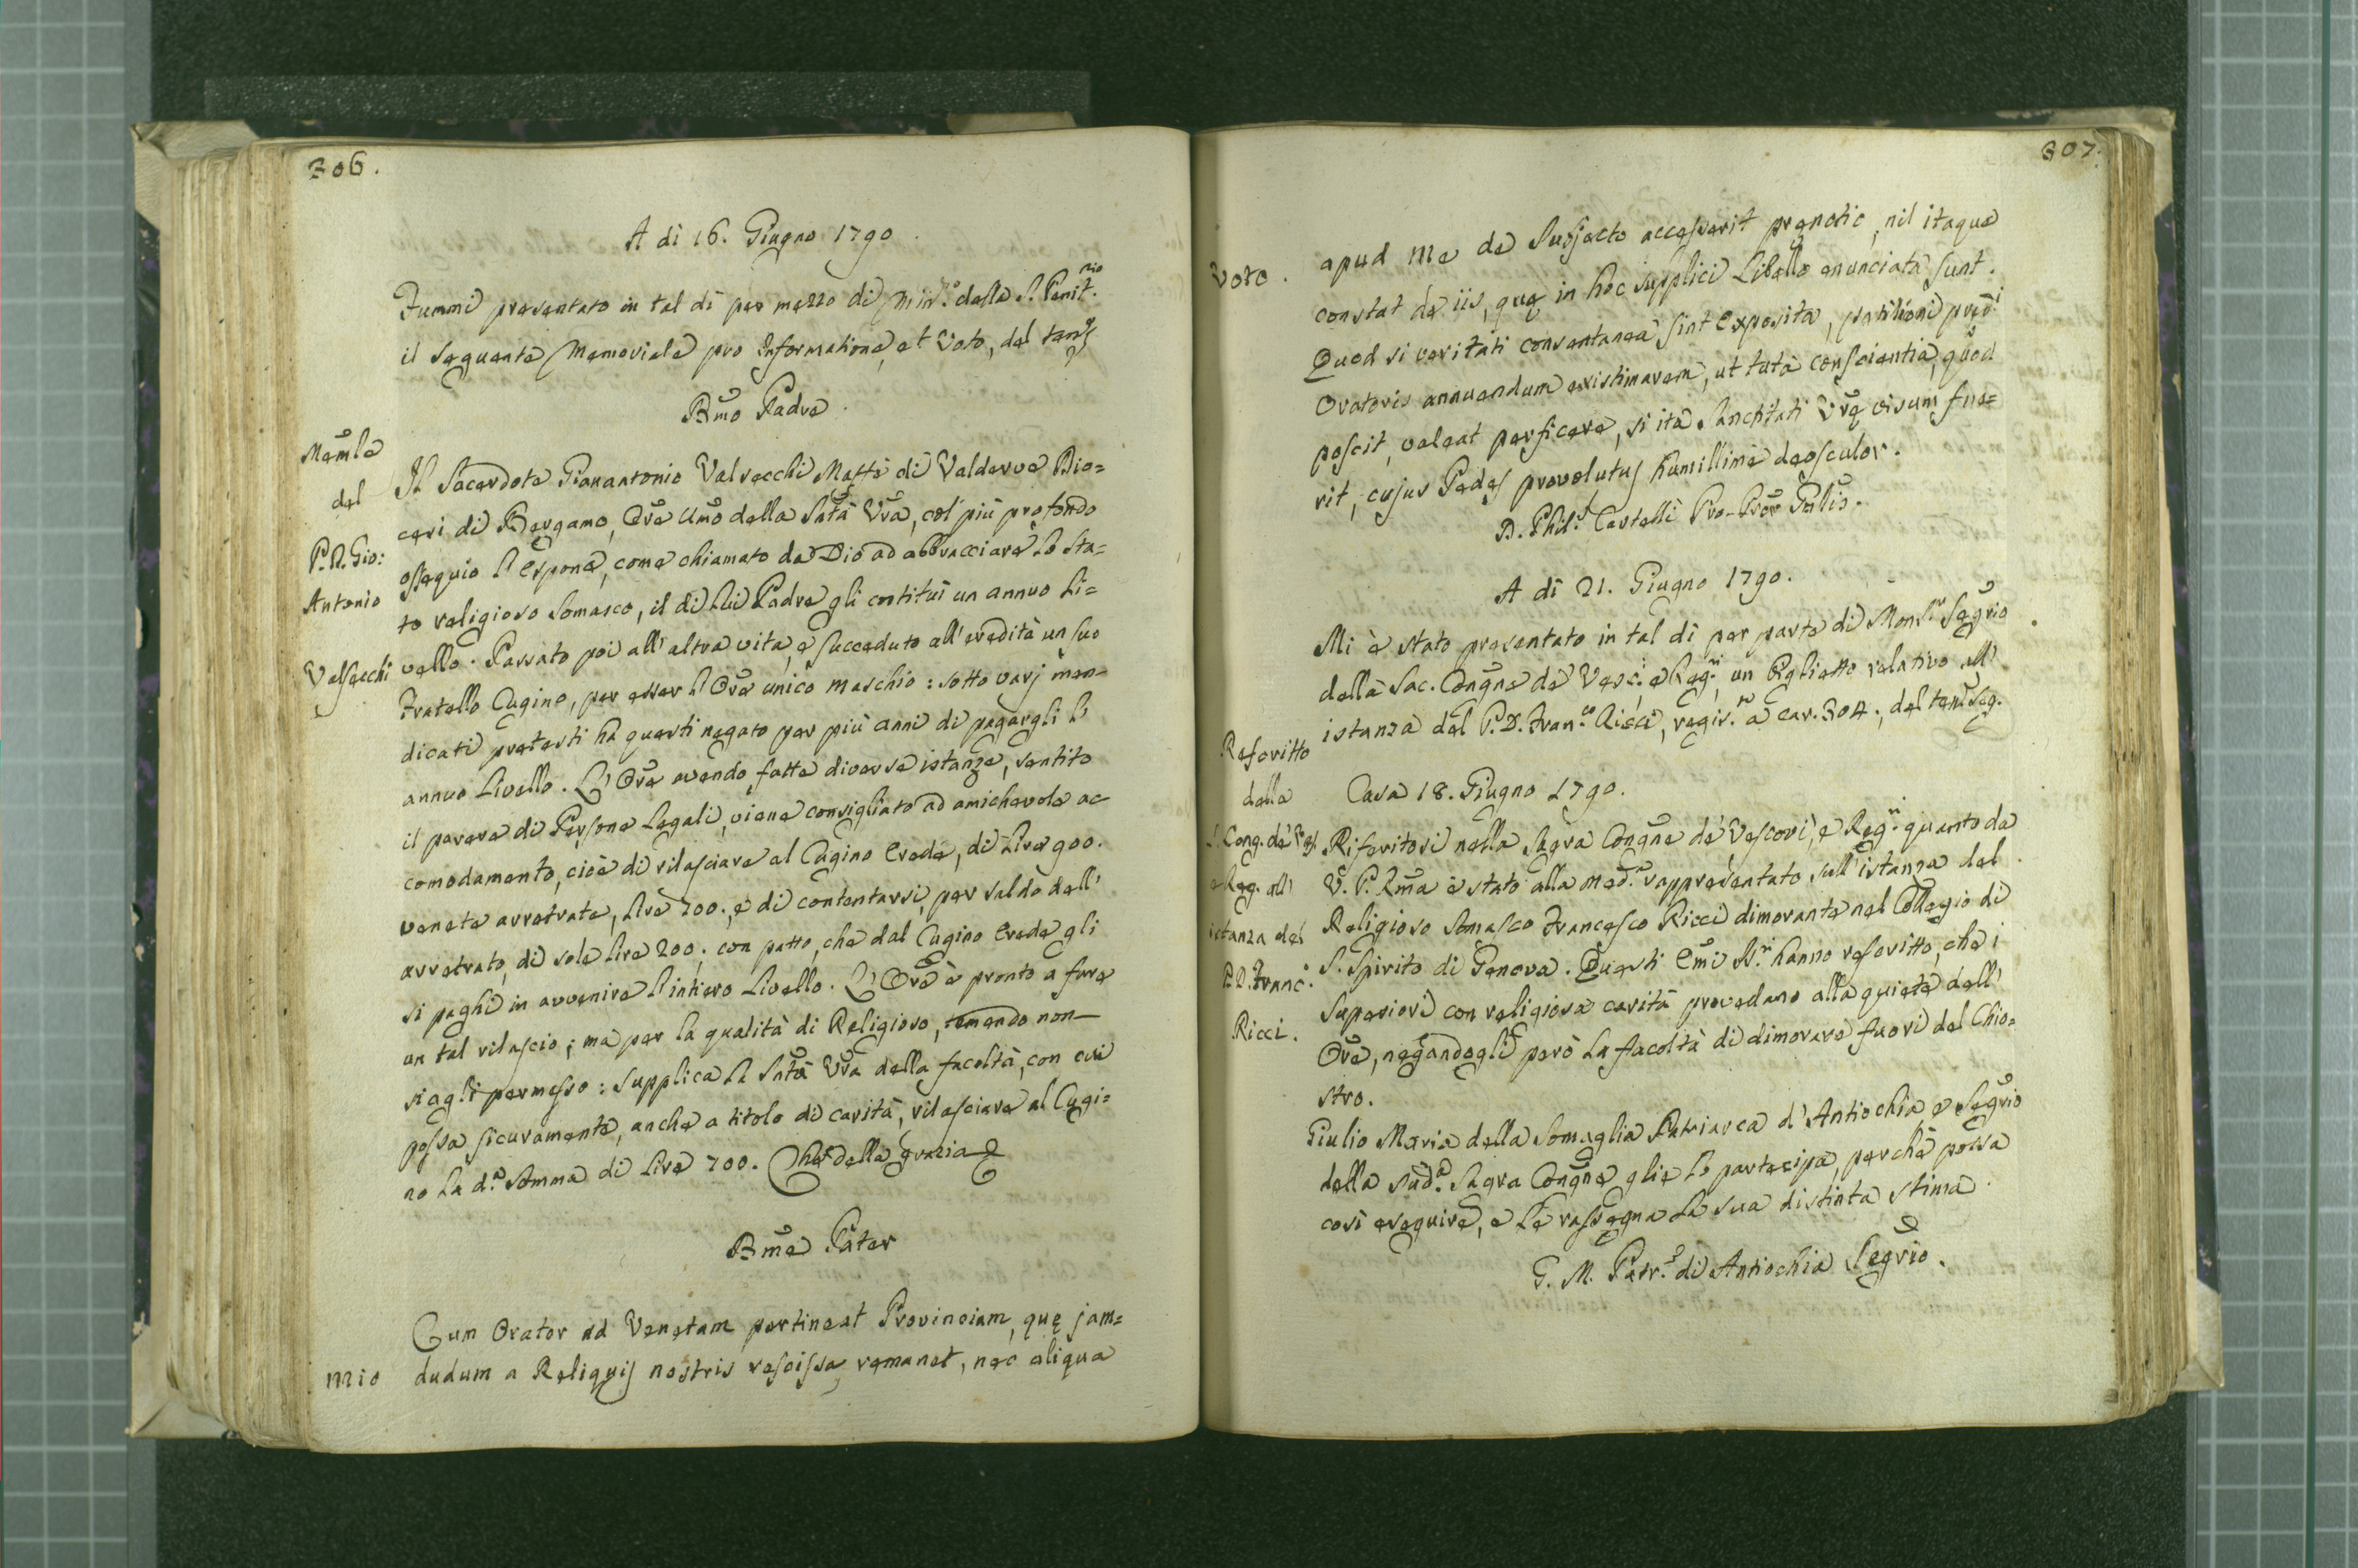 306.
A dì 16. Giugno 1790.
Fummi presentato in tal dì per mezzo di Min.º della S. Penit.ria
il seguente Memoriale pro Informatione, et Voto, del
Bm̃o Padre.
Mem̃le
del
P. D. Gio:
Antonio
Valsecchi
Il Sacerdote Gianantonio Valsecchi di Valderva Dio=
cesi di Bergamo, Or̃e Um̃o della Sñtà Vr̃a, col più profondo
ossequio l'espone, come chiamato da Dio ad abbracciare lo sta=
to religioso Somasco, il di lui Padre gli costituì un annuo Li=
vello. Passato poi all'altra vita, e succeduto all'eredità un suo
Fratello Cugino, per esser l'Or̃e unico maschio: sotto varj men=
dicati pretesti ha questi negato per più anni di pagargli l'
annuo Livello. L'Or̃e avendo fatte diverse istanze, sentito
il parere di Persone Legali, viene consigliato ad amichevole ac
comodamento, cioè di rilasciare al Cugino Erede, di Lire 900.
venete arretrate, lire 700., e di contentarsi, per saldo dell'
arretrato, di sole lire 200; con patto, che dal Cugino Erede gli
si paghi in avvenire l'intiero Livello. L'Or̃e è pronto a fare
un tal rilascio; ma per la qualità di Religioso, temendo non
siagli permesso: supplica la Sñtà Vr̃a della facoltà, con cui
possa sicuramente, anche a titolo di carità, rilasciare al Cugi=
no la d.ª somma di lire 700. Che della grazia
Bm̃e Pater
mio
Cum Orator ad Venetam pertineat Provinciam, quę jam=
dudum a Reliquis nostris rescissa remanet, nec aliqua
307.
Voto.
apud me de Subjecto accesserit pręnotio, nil itaque
constat de iis, quę in hoc supplici Libello enunciata sunt.
Quod si veritati consentanea sint exposita, petitioni pręd.i
Oratoris annuendum existimarem, ut tuta conscientia, quod
poscit, valeat perficere, si ita Sanctitati Vr̃ę visum fue=
rit, cujus Pedes provolutus humillime deosculor.
D. Phil.s Castelli Pro-Pror̃ Gñlis.
A dì 21. Giugno 1790.
Mi è stato presentato in tal dì per parte di Mons.r Segr̃io
della Sac. Congñe de' Vesc.i e Reg.ri, un Biglietto relativo all'
istanza del P. D. Fran.co Ricci, regis.ta a car. 304., del ten.r seg.
Rescritto
della
S. Cong. de' Ves.
e Reg. all'
istanza del
P. D. Franc.º
Ricci.
Casa 18. Giugno 1790.
Riferitosi nella Sagra Congñe de' Vescovi, e Reg.ri quanto da
V. P. Rm̃a è stato alla med.ª rappresentato sull'istanza del
Religioso Somasco Francesco Ricci dimorante nel Collegio di
S. Spirito di Genova. Questi Em̃i SS.ri hanno rescritto, che i
Superiori con religiosa carità provedano alla quiete dell'
Or̃e, negandogli però la facoltà di dimorare fuori del Chio=
stro.
Giulio Maria della Somaglia Patriarca d'Antiochia e Segr̃io
della sud.ª Sagra Congñe glie lo partecipa, perchè possa
così eseguire, e le rassegna la sua distinta stima.
G. M. Patr.a di Antiochia Segr̃io.